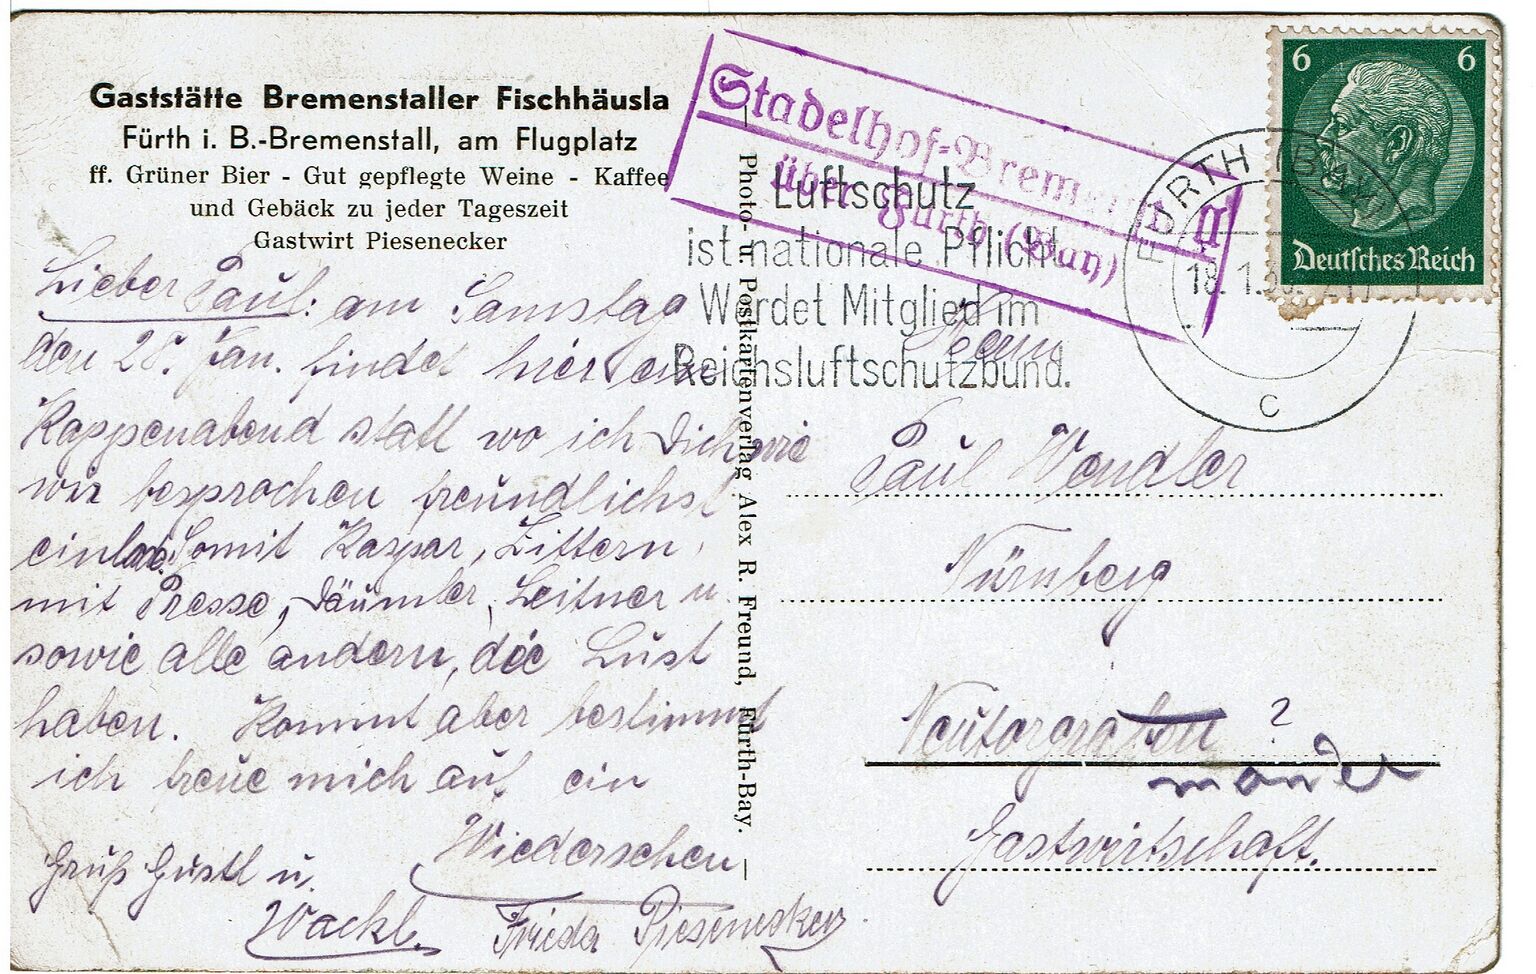 Gaststätte Bremenstaller Fischhäusla
Fürth i. B.-Bremenstall, am Flugplatz
ff. Grüner Bier - Gut gepflegte Weine - Kaffee
und Gebäck zu jeder Tageszeit
Gastwirt Piesenecker
Lieber Paul: am Samstag
den 28. Jan. findet hier ein
Kappenabend statt wo ich Dich wie
wir besprochen freundlichst
einlade. Somit Kaspar, Zittern,
mit Presse, Däumler, Leitner u
sowie alle andern, die Lust
haben. Kommt aber bestimmt
ich freue mich auf ein
Wiedersehen
Gruß Gustl u.
Wackl. Frieda Piesenecker
Photo- u. Postkartenverlag Alex R. Freund, Fürth-Bay.
Stadelhof-Bremenstall
über Fürth (Bay)
Luftschutz
ist nationale Pflicht
Werdet Mitglied im
Reichsluftschutzbund.
FÜRTH (BAY)
18.1.
C
6 6
Deutsches Reich
Herrn
Paul Wendler
Nürnberg
Neutorgraben ?
Gastwirtschaft.